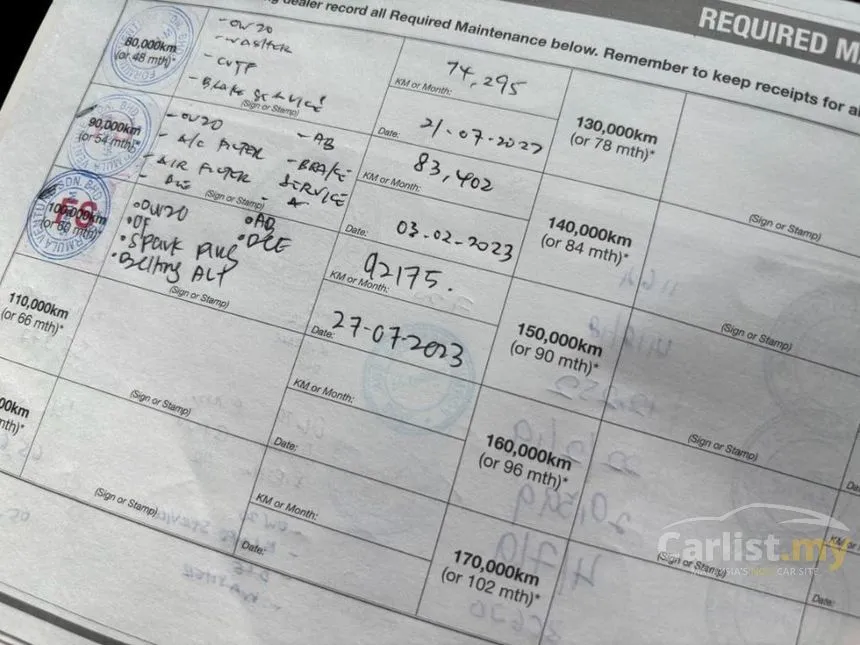 REQUIRED M
ng dealer record all Required Maintenance below. Remember to keep receipts for al
80,000km
(or 48 mth)*
- OW20
- WASHER
- BRAKE SERVICE
(Sign or Stamp)
KM or Month:
74,295
Date:
21.07.2022
90,000km
(or 54 mth)*
- OW20
- A/C FILTER
- AIR FILTER
- AB
- BRAKE
SERVICE
(Sign or Stamp)
KM or Month:
83,402
Date:
03.02.2023
100,000km
(or 60 mth)*
• OW20
• OF
• Spark Plug
• Belting ALT
• AB
(Sign or Stamp)
KM or Month:
92175.
Date:
27-07-2023
110,000km
(or 66 mth)*
(Sign or Stamp)
KM or Month:
Date:
00km
mth)*
(Sign or Stamp)
KM or Month:
Date:
130,000km
(or 78 mth)*
(Sign or Stamp)
140,000km
(or 84 mth)*
(Sign or Stamp)
150,000km
(or 90 mth)*
(Sign or Stamp)
160,000km
(or 96 mth)*
(Sign or Stamp)
170,000km
(or 102 mth)*
Da
KM or
Date:
Carlist.my
MALAYSIA'S NO.1 CAR SITE